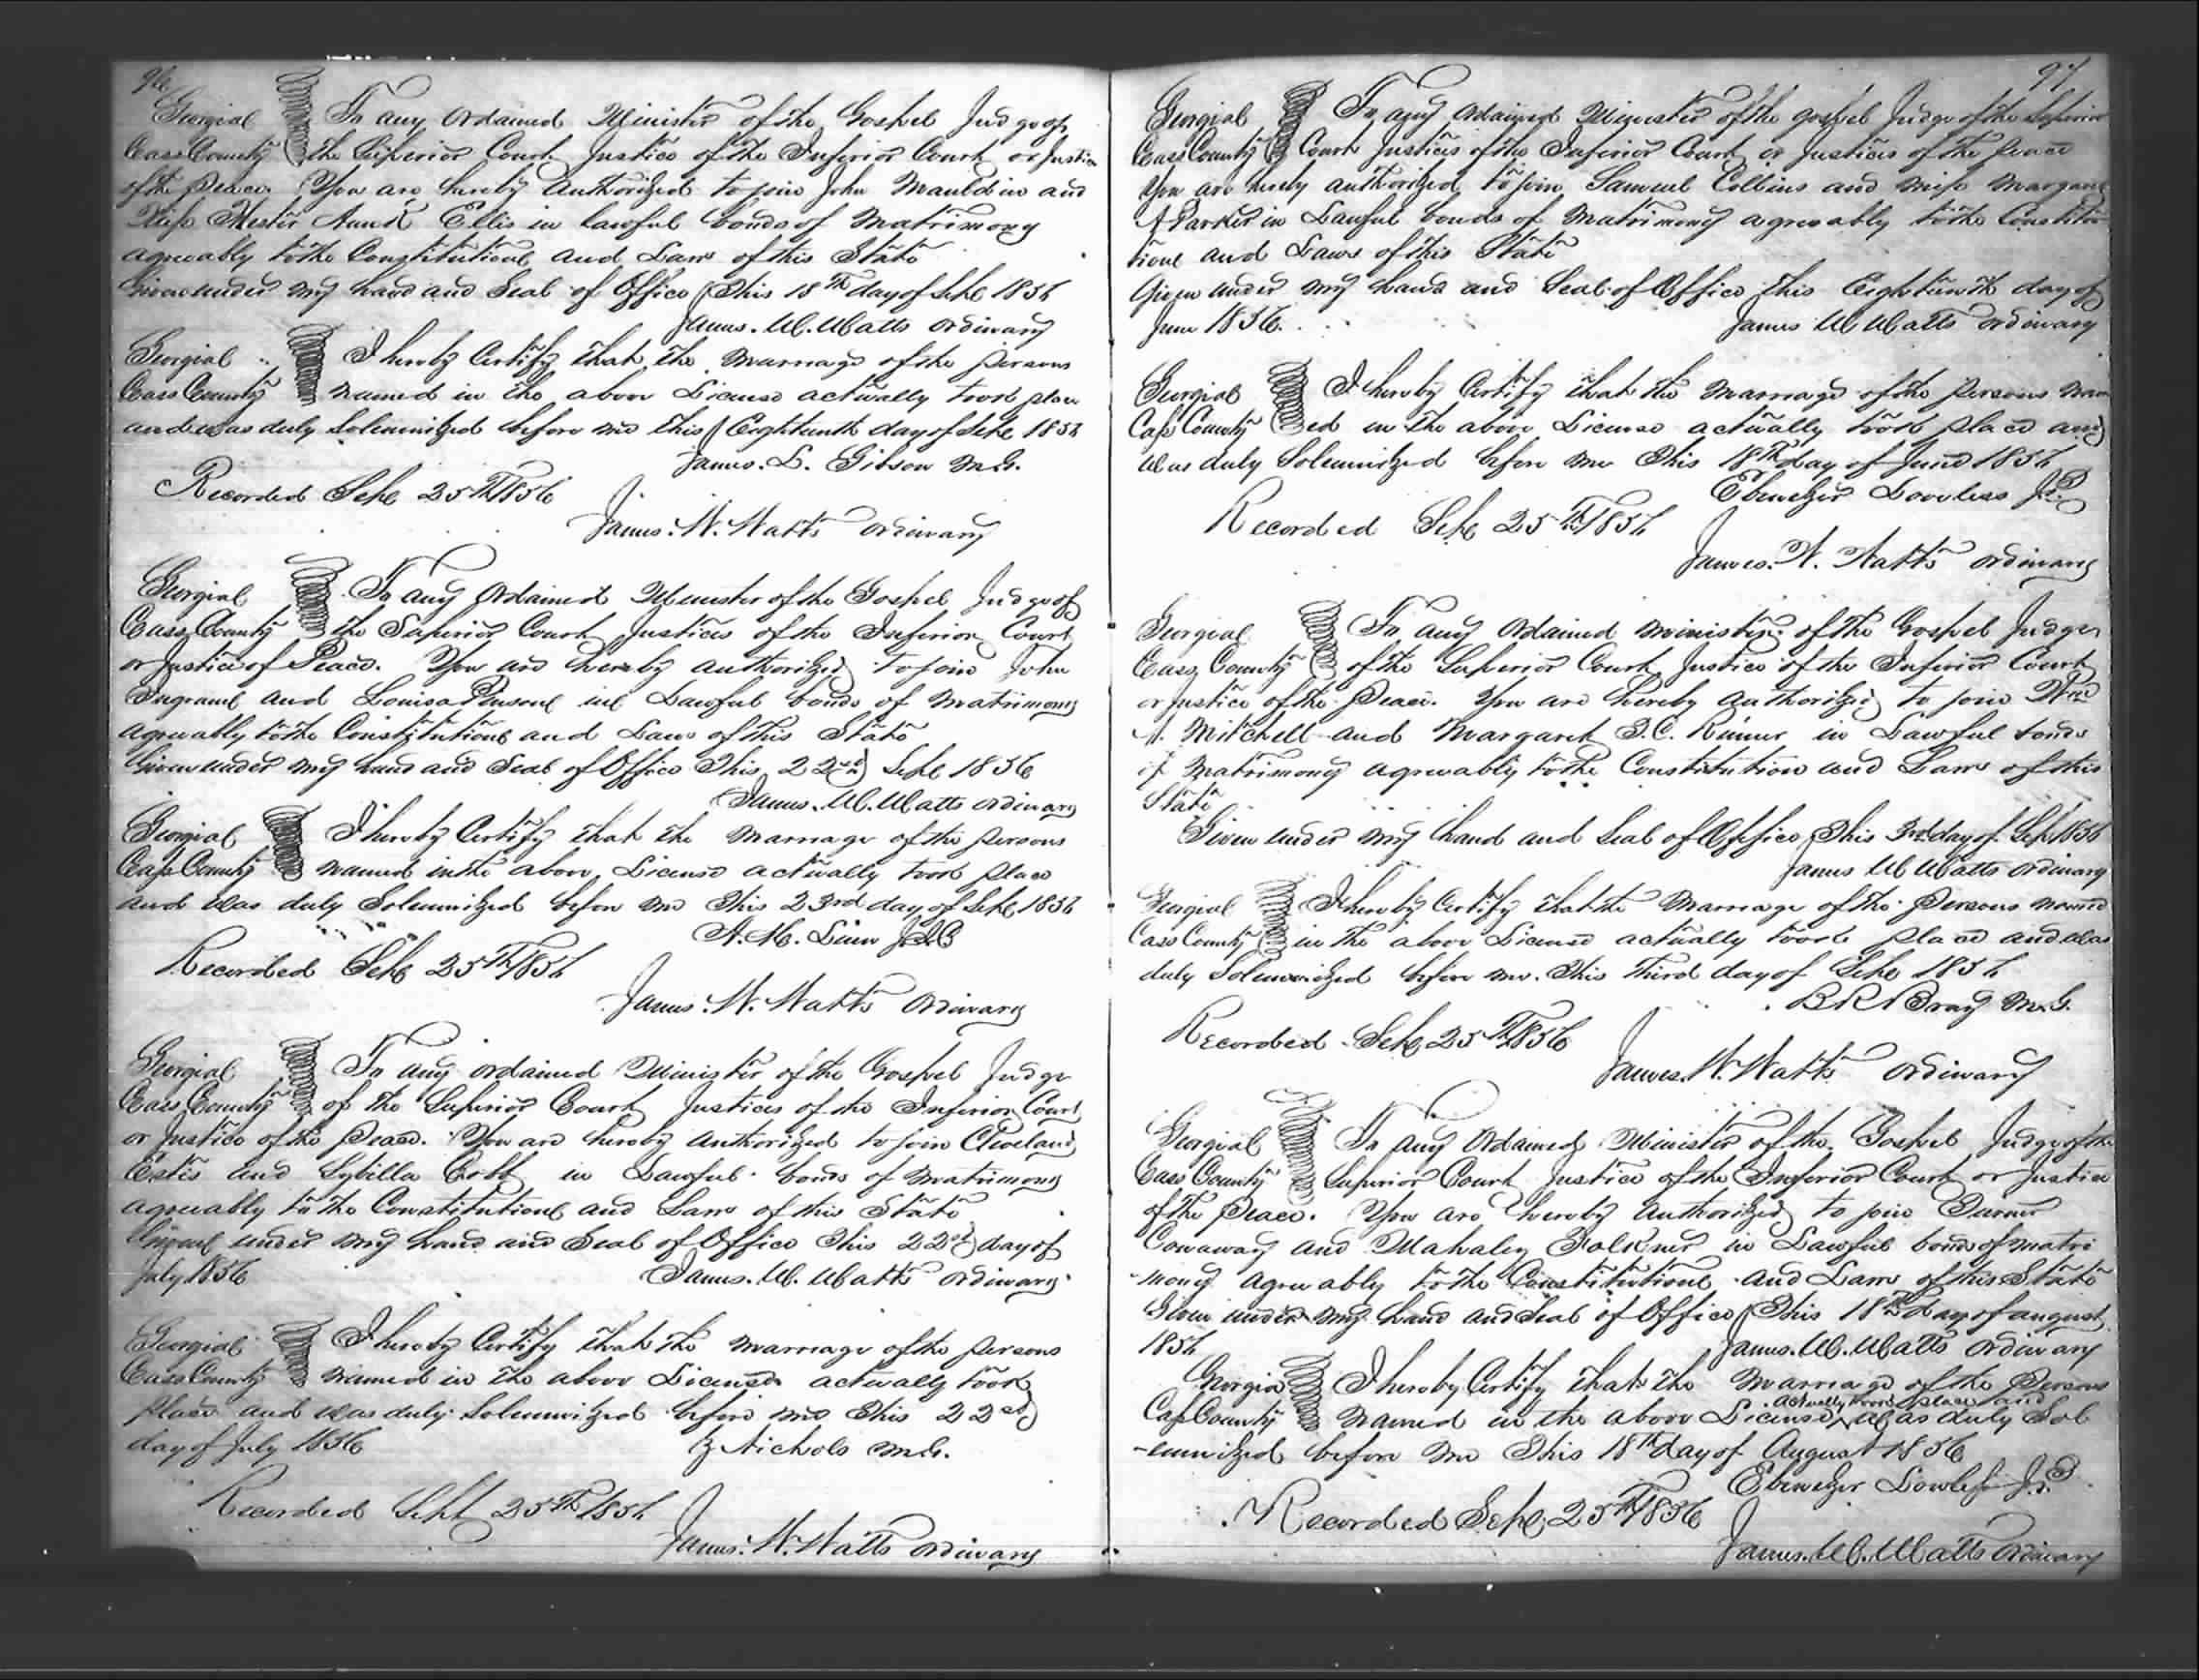 96
Georgia To any Ordained Minister of the Gospel Judge of
Cass County the Superior Court Justice of the Inferior Court or Justice
of the Peace You are hereby authorized to join John Mauldin and
Miss Hester Ann Ellis in lawful bonds of Matrimony
agreeably to the Constitution and Laws of this State
Given under my hand and Seal of Office This 18th day of Sept 1856
James. W. Watts Ordinary
Georgia I hereby Certify that the marriage of the persons
Cass County named in the above License actually took place
and was duly Solemnized before me this Eighteenth day of Sept 1856
James. L. Gibson M.G.
Recorded Sept 25th 1856
James. W. Watts Ordinary
Georgia To any Ordained Minister of the Gospel Judge of
Cass County the Superior Court Justices of the Inferior Court
or Justice of Peace. You are hereby authorized to join John
Ingram and Louisa Pinson in Lawful bonds of Matrimony
agreeably to the Constitution and Laws of this State
Given under my hand and Seal of Office This 22nd Sept 1856
James. W. Watts Ordinary
Georgia I hereby Certify that the marriage of the persons
Cass County named in the above License actually took place
and was duly Solemnized before me This 23rd day of Sept 1856
A. M. Linn
Recorded Sept 25th 1856
James. W. Watts Ordinary
Georgia To any ordained Minister of the Gospel Judge
Cass County of the Superior Court Justices of the Inferior Court
or Justice of the Peace. You are hereby authorized to join Cleveland
Estis and Sybilla Cobb in Lawful bonds of Matrimony
agreeably to the Constitution and Laws of this State
Given under my hand and Seal of Office This 22nd day of
July 1856 James. W. Watts Ordinary
Georgia I hereby Certify that the marriage of the persons
Cass County named in the above License actually took
place and was duly Solemnized before me This 22nd
day of July 1856 Nichols M.G.
Recorded Sept 25th 1856
James. W. Watts Ordinary
97
Georgia To any Ordained Minister of the gospel Judge of the Superior
Cass County Court Justices of the Inferior Court or Justices of the peace
You are hereby authorized to join Samuel Collins and Miss Margaret
A Parker in Lawful bonds of Matrimony agreeably to the Constitu
tion and Laws of this State
Given under my hand and Seal of Office this Eighteenth day of
June 1856. James W Watts Ordinary
Georgia I hereby Certify that the marriage of the persons nam
Cass County ed in the above License actually took place and
was duly Solemnized before me This 18th day of June 1856
Ebenezer Loveless J.P
Recorded Sept 25th 1856
James. W. Watts Ordinary
Georgia To any Ordained Minister of the Gospel Judge
Cass County of the Superior Court Justice of the Inferior Court
or Justice of the Peace. You are hereby authorized to join Wm
A. Mitchell and Margaret S.C. in Lawful bonds
of Matrimony agreeably to the Constitution and Laws of this
State
Given under my hand and Seal of Office This 3rd day of Sept 1856
James W Watts Ordinary
Georgia I hereby Certify that the Marriage of the Persons named
Cass County in the above License actually took place and was
duly Solemnized before me. This third day of Sept 1856
B R Bray M.G.
Recorded Sept 25th 1856
James. W. Watts Ordinary
Georgia To any Ordained Minister of the Gospel Judge of the
Cass County Superior Court Justice of the Inferior Court or Justice
of the Peace. You are hereby authorized to join Turner
Conaway and Mahaley Folkner in Lawful bonds of matri
-mony agreeably to the Constitution and Laws of this State
Given under my hand and Seal of Office This 18th day of august
1856 James. W. Watts Ordinary
Georgia I hereby Certify that the Marriage of the Persons
actually took place and
Cass County named in the above License was duly Sol
-emnized before me This 18th day of August 1856
Ebenezer Lowless J.P
Recorded Sept 25th 1856
James. W. Watts Ordinary